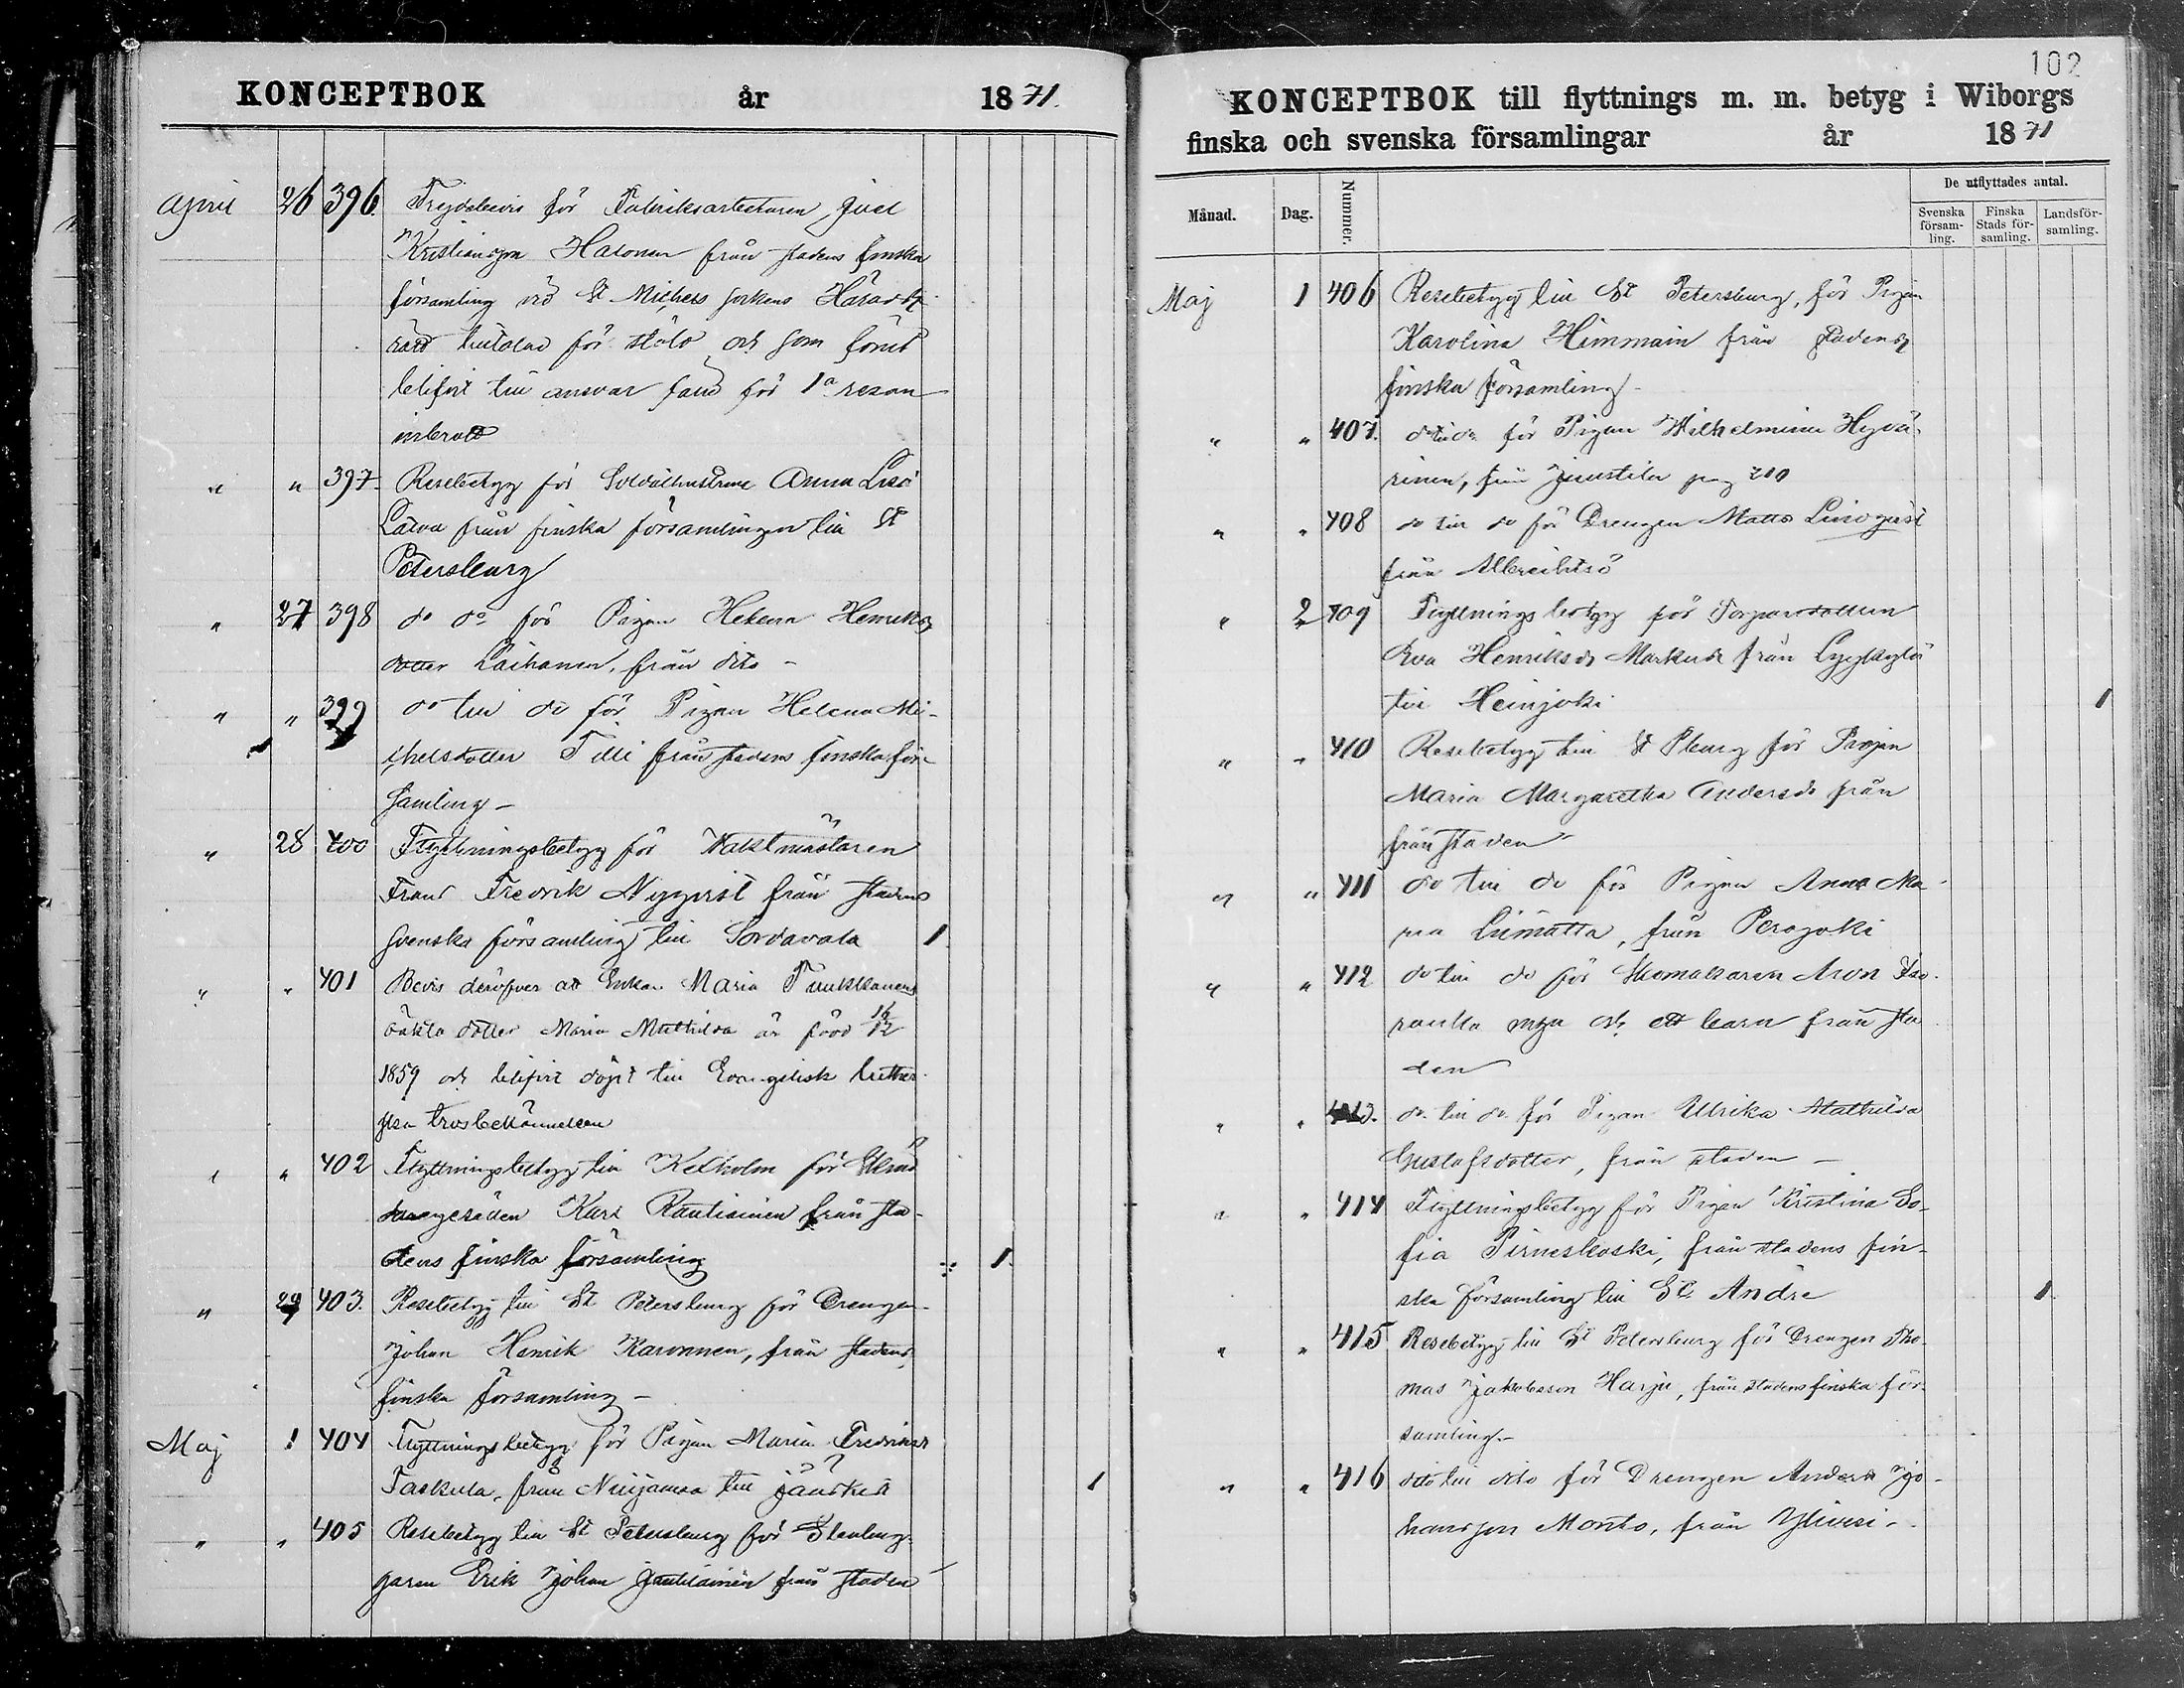 KONCEPTBOK år 1871.
April 26 396. Frejdebevis för Fabriksarbetaren Joel
Kristiansson Halonen från stadens finska
församling vid St Michels sockens Härads
rätt tilltalad för stöld och som förut
blifvit till ansvar fäld för 1a resan
inbrott
" " 397. Resebetyg för Soldathustrun Anna Lisa
Latva från finska församlingen till St
Petersburg
" 27 398 do do för Pigan Helena Henriks
dotter Laihanen, från dito -
" " 399 do till do för Pigan Helena Mi-
chelsdotter Tilli från stadens finska för-
samling -
" 28 400 Flyttningsbetyg för Vaktmästaren
Frans Fredrik Nyqvist från stadens
svenska församling till Sordavala 1
" " 401 Bevis deröfver att Enkan Maria Tuukkanens
oäkta dotter Maria Mathilda är född 16/12
1859 och blifvit döpt till Evangelisk luther-
ska trosbekännelsen
" " 402 Flyttningsbetyg till Kexholm för
gesällen Karl Rautiainen från sta-
dens finska församling 1.
" 29 403. Resebetyg till St Petersburg för Drengen
Johan Henrik Karonnen, från stadens
finska församling -
Maj 1 404 Flyttningsbetyg för Pigan Maria Fredriksd
Taskula, från Nuijamaa till Jääskis 1
" " 405 Resebetyg till St Petersburg för Stenhug-
garen Erik Johan Jantiainen från staden
102
KONCEPTBOK till flyttnings m. m. betyg i Wiborgs
finska och svenska församlingar år 1871
Månad. Dag. Nummer. De utflyttades antal.
Svenska församling. Finska Stads församling. Landsförsamling.
Maj 1 406 Resebetyg till St Petersburg, för Pigan
Karolina Himmain från stadens
finska församling -
" " 407. do till do för Pigan Wilhelmina Hyvä-
rinen, från Juustila pag 210
" " 408 do till do för Drengen Matts Lindqvist
från Albreihtsö
" 2 409 Flyttningsbetyg för Torparedottern
Eva Henriksdr Markud från Lyykylä
till Heinjoki 1
" " 410 Resebetyg till St Pburg för Pigan
Maria Margaretha Andersdr från
från staden
" " 411 do till do för Pigan Anna Ma-
ria Liimatta, från Perojoki
" " 412 do till do för Skomakaren Aron
och ett barn från sta
den
" " 413. do till do för Pigan Ulrika Mathilda
Gustafsdotter, från staden -
" " 414 Flyttningsbetyg för Pigan Kristina So-
fia Pirneskoski, från stadens fin-
ska församling till St Andre 1.
" " 415 Resebetyg till St Petersburg för Drengen Tho-
mas Jakobsson Harju, från stadens finska för-
samling. -
" " 416 dito till dito för Drengen Anders Jo-
hansson Monto, från Ylivesi -